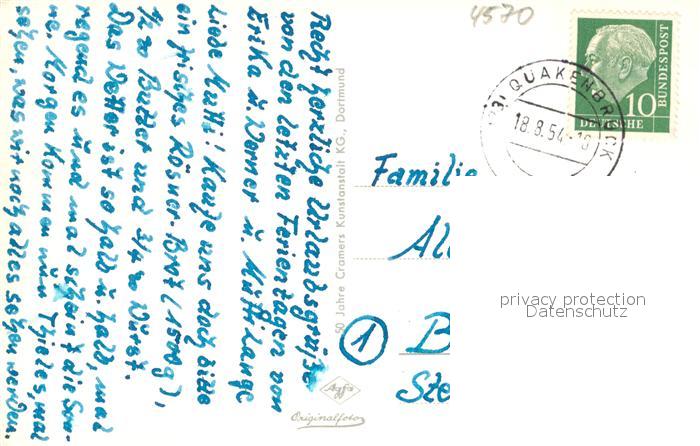 4570
(23) QUAKENBRÜCK
18.8.54-18
10
DEUTSCHE
BUNDESPOST
Recht herzliche Urlaubsgrüße
von den letzten Ferientagen von
Erika u. Werner u. Mutti Lange
Liebe Mutti! Kaufe uns doch bitte
ein frisches Rösner-Brot (1500g),
1/2 ℔ Butter und 3/4 ℔ Wurst.
Das Wetter ist so halb u. halb, mal
regend es und mal scheint die Son-
ne. Morgen kommen nun Thieles, mal
sehen, was wir noch alles sehen werden.
50 Jahre Cramers Kunstanstalt KG., Dortmund
Agfa
Originalfoto
Familie
Al
1 B
Ste
privacy protection
Datenschutz